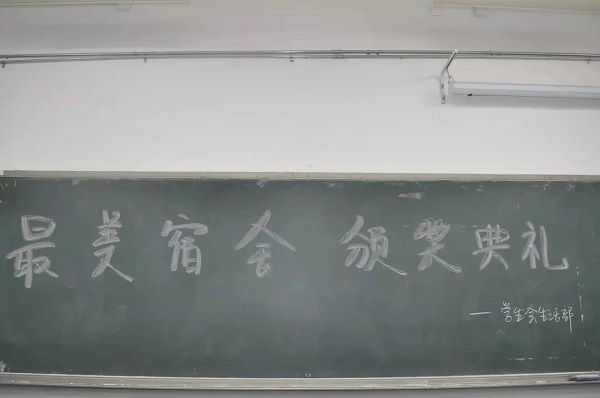 最美宿舍 颁奖典礼
—学生会生活部